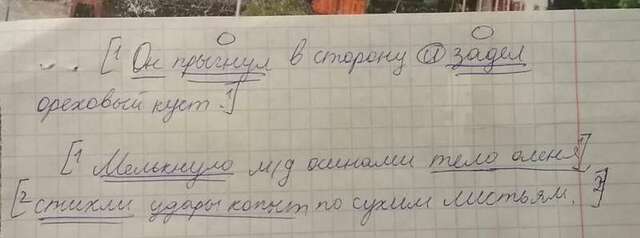 .. [¹ Он прыгнул в сторону и задел
ореховый куст.¹]
[¹ Мелькнуло м/д осинами тело оленя¹],
[² стихли удары копыт по сухим листьям. ²]